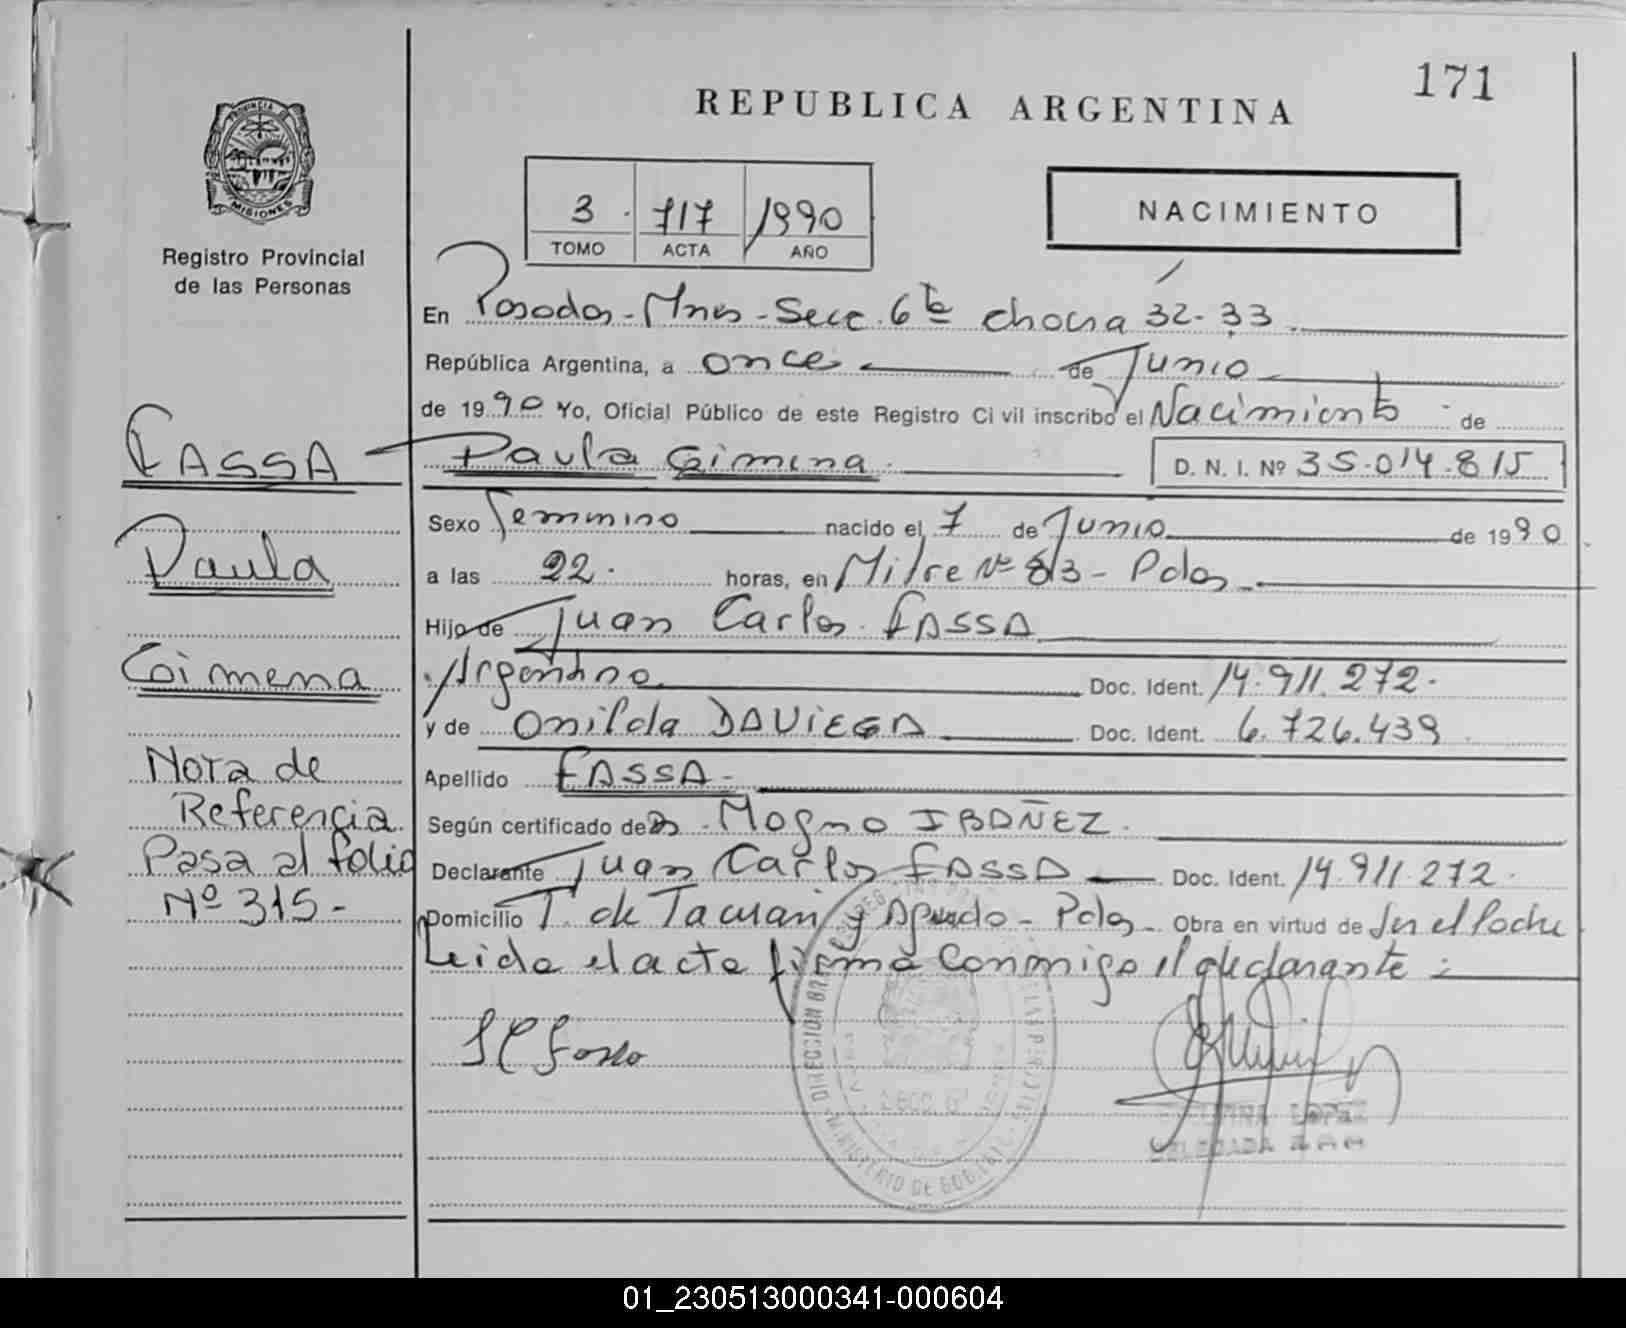 171
REPUBLICA ARGENTINA
PROVINCIA
MISIONES
Registro Provincial
de las Personas
3 717 1990
TOMO ACTA AÑO
NACIMIENTO
En Posadas - Mnes - Secc. 6ta chacra 32-33
República Argentina, a once de Junio
de 1990 Yo, Oficial Público de este Registro Civil inscribo el Nacimiento de
FASSA Paula Gimena D. N. I. Nº 35.014.815
Sexo Femenino nacido el 7 de Junio de 1990
Paula
a las 22. horas, en Mitre Nº 813 - Pdas
Hijo de Juan Carlos FASSA
Gimena
Argentino Doc. Ident. 14.911.272.
y de Onilda DAVIEGA Doc. Ident. 6.726.439
Nota de
Referencia
Pasa al folio
Nº 315.-
Apellido FASSA.-
Según certificado de Magno IBAÑEZ.
Declarante Juan Carlos FASSA Doc. Ident. 14.911.272.
Domicilio T. de Tacuari y Aguado - Pdas Obra en virtud de Ser el Padre
Leida el acta firma conmigo el declarante :
J C Fassa
DIRECCION
MINISTERIO DE
SECC. 6ª
LOPEZ
DELEGADA
01_230513000341-000604